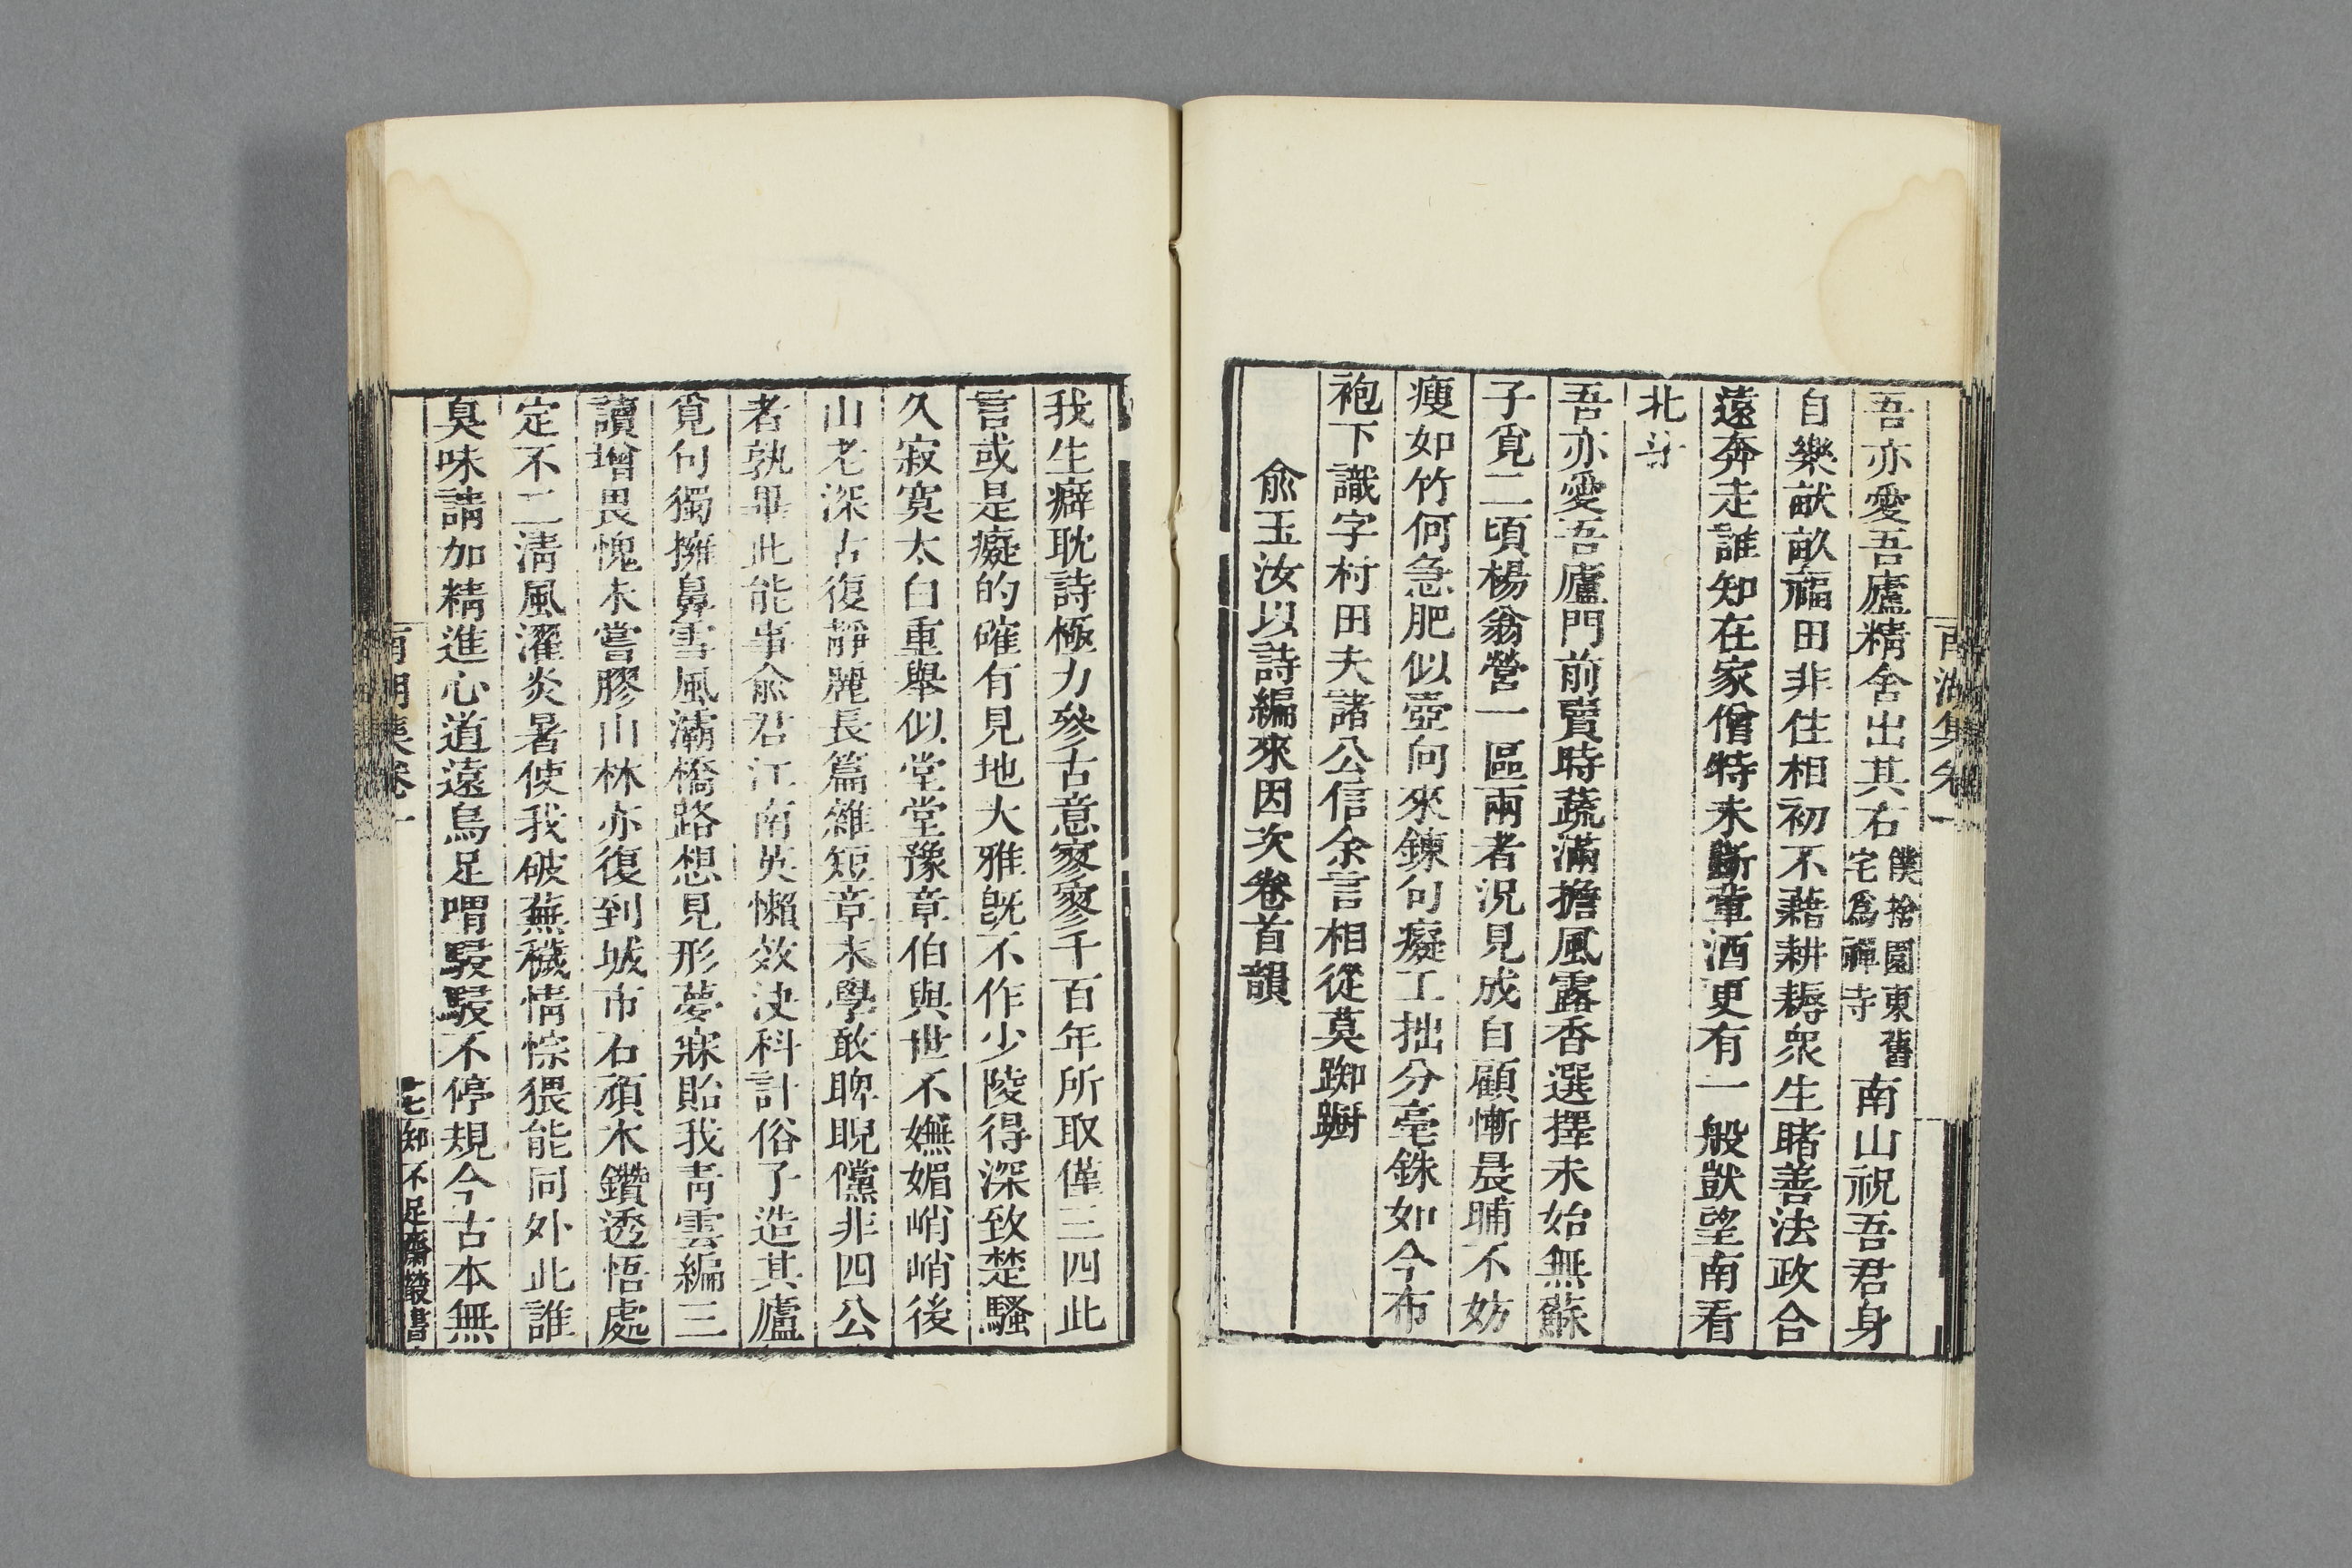 吾亦愛吾廬精舍出其右僕捨園東舊宅爲禪寺南山祝吾君身
自樂畎畝福田非住相初不藉耕耨衆生睹善法政合
遠奔走誰知在家僧特未斷葷酒更有一般獃望南看
北斗
吾亦愛吾廬門前賣時蔬滿擔風露香選擇未始無蘇
子覓二頃楊翁營一區兩者況見成自顧慚晨晡不妨
瘦如竹何急肥似壺向來鍊句癡工拙分毫銖如今布
袍下識字村田夫諸公信余言相從莫踟躕
俞玉汝以詩編來因次卷首韻
我生癖耽詩極力參古意寥寥千百年所取僅三四此
言或是癡的確有見地大雅旣不作少陵得深致楚騷
久寂寞太白重舉似堂堂豫章伯與世不嫵媚峭峭後
山老深古復靜麗長篇雜短章末學敢睥睨儻非四公
者孰畢此能事俞君江南英懶效決科計俗子造其廬
覓句獨擁鼻雪風灞橋路想見形夢寐貽我靑雲編三
讀增畏愧未嘗膠山林亦復到城市石頑木鑽透悟處
定不二淸風濯炎暑使我破蕪穢情悰猥能同外此誰
臭味請加精進心道遠烏足喟駸駸不停規今古本無
南湖集卷一
七 知不足齋叢書